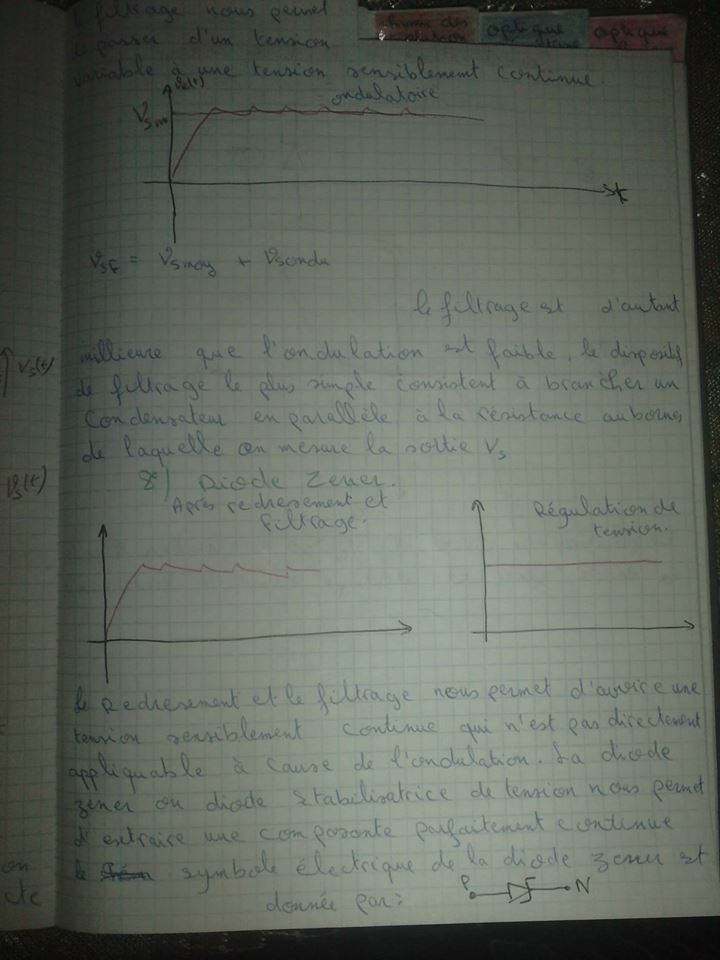 filtrage nous permet
passer d'un tension
variable à une tension sensiblement continue.
chimie des
solution
optique
optique
Vs(t)
ondulatoire
Vsm
t
Vsf = Vsmoy + Vsondu
le filtrage est d'autant
millieure que l'ondulation est faible, le dispositif
de filtrage le plus simple consistent à brancher un
Condensateur en parallèle à la résistance au bornes
de laquelle on mesure la sortie Vs
Vs(t)
Vs(t)
8°) Diode Zener.
Après redresement et
filtrage.
Régulation de
tension.
Le Redresement et le filtrage nous permet d'avoire une
tension sensiblement continue qui n'est pas directement
appliquable à cause de l'ondulation. La diode
zener ou diode stabilisatrice de tension nous permet
d'extraire une composante parfaitement continue
le symbole électrique de la diode zener est
donnée par:
P
N
on
cte